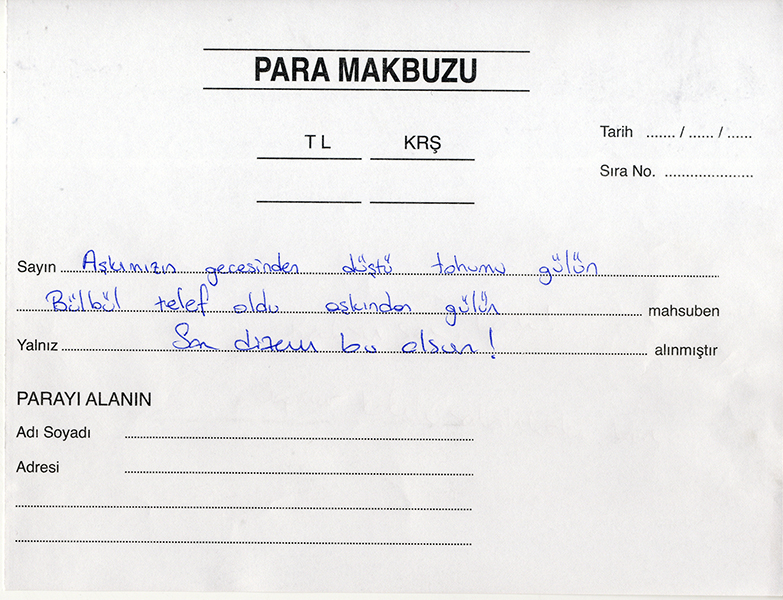 PARA MAKBUZU
TL KRŞ
Tarih ....... / ...... / ......
Sıra No. .....................
Sayın Aşkımızın gecesinden düştü tohumu gülün
Bülbül telef oldu aşkından gülün mahsuben
Yalnız Son dizem bu olsun! alınmıştır
PARAYI ALANIN
Adı Soyadı
Adresi